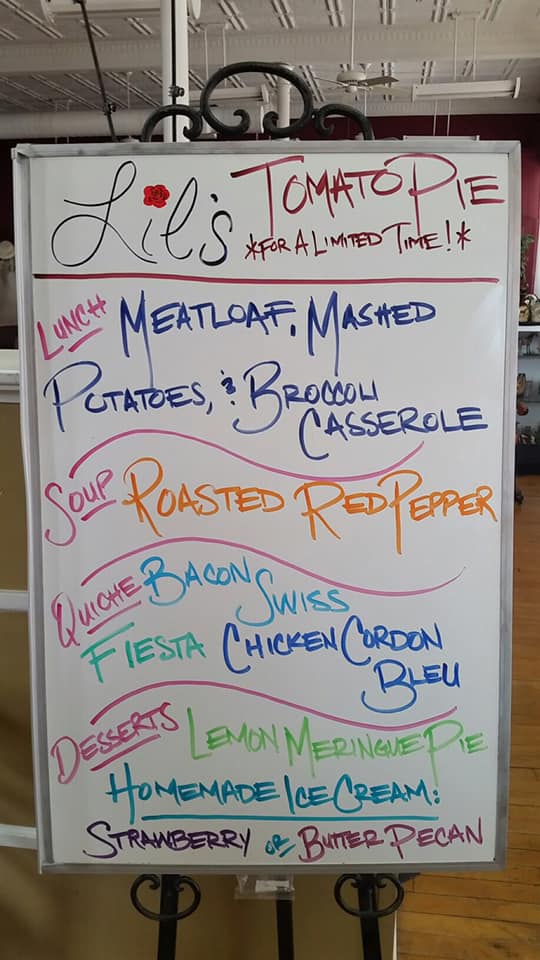 Lil's TOMATO PIE
*FOR A LIMITED TIME!*
LUNCH MEATLOAF, MASHED
POTATOES, & BROCCOLI
CASSEROLE
SOUP ROASTED RED PEPPER
QUICHE BACON SWISS
FIESTA CHICKEN CORDON
BLEU
DESSERTS LEMON MERINGUE PIE
HOMEMADE ICE CREAM:
STRAWBERRY OR BUTTER PECAN